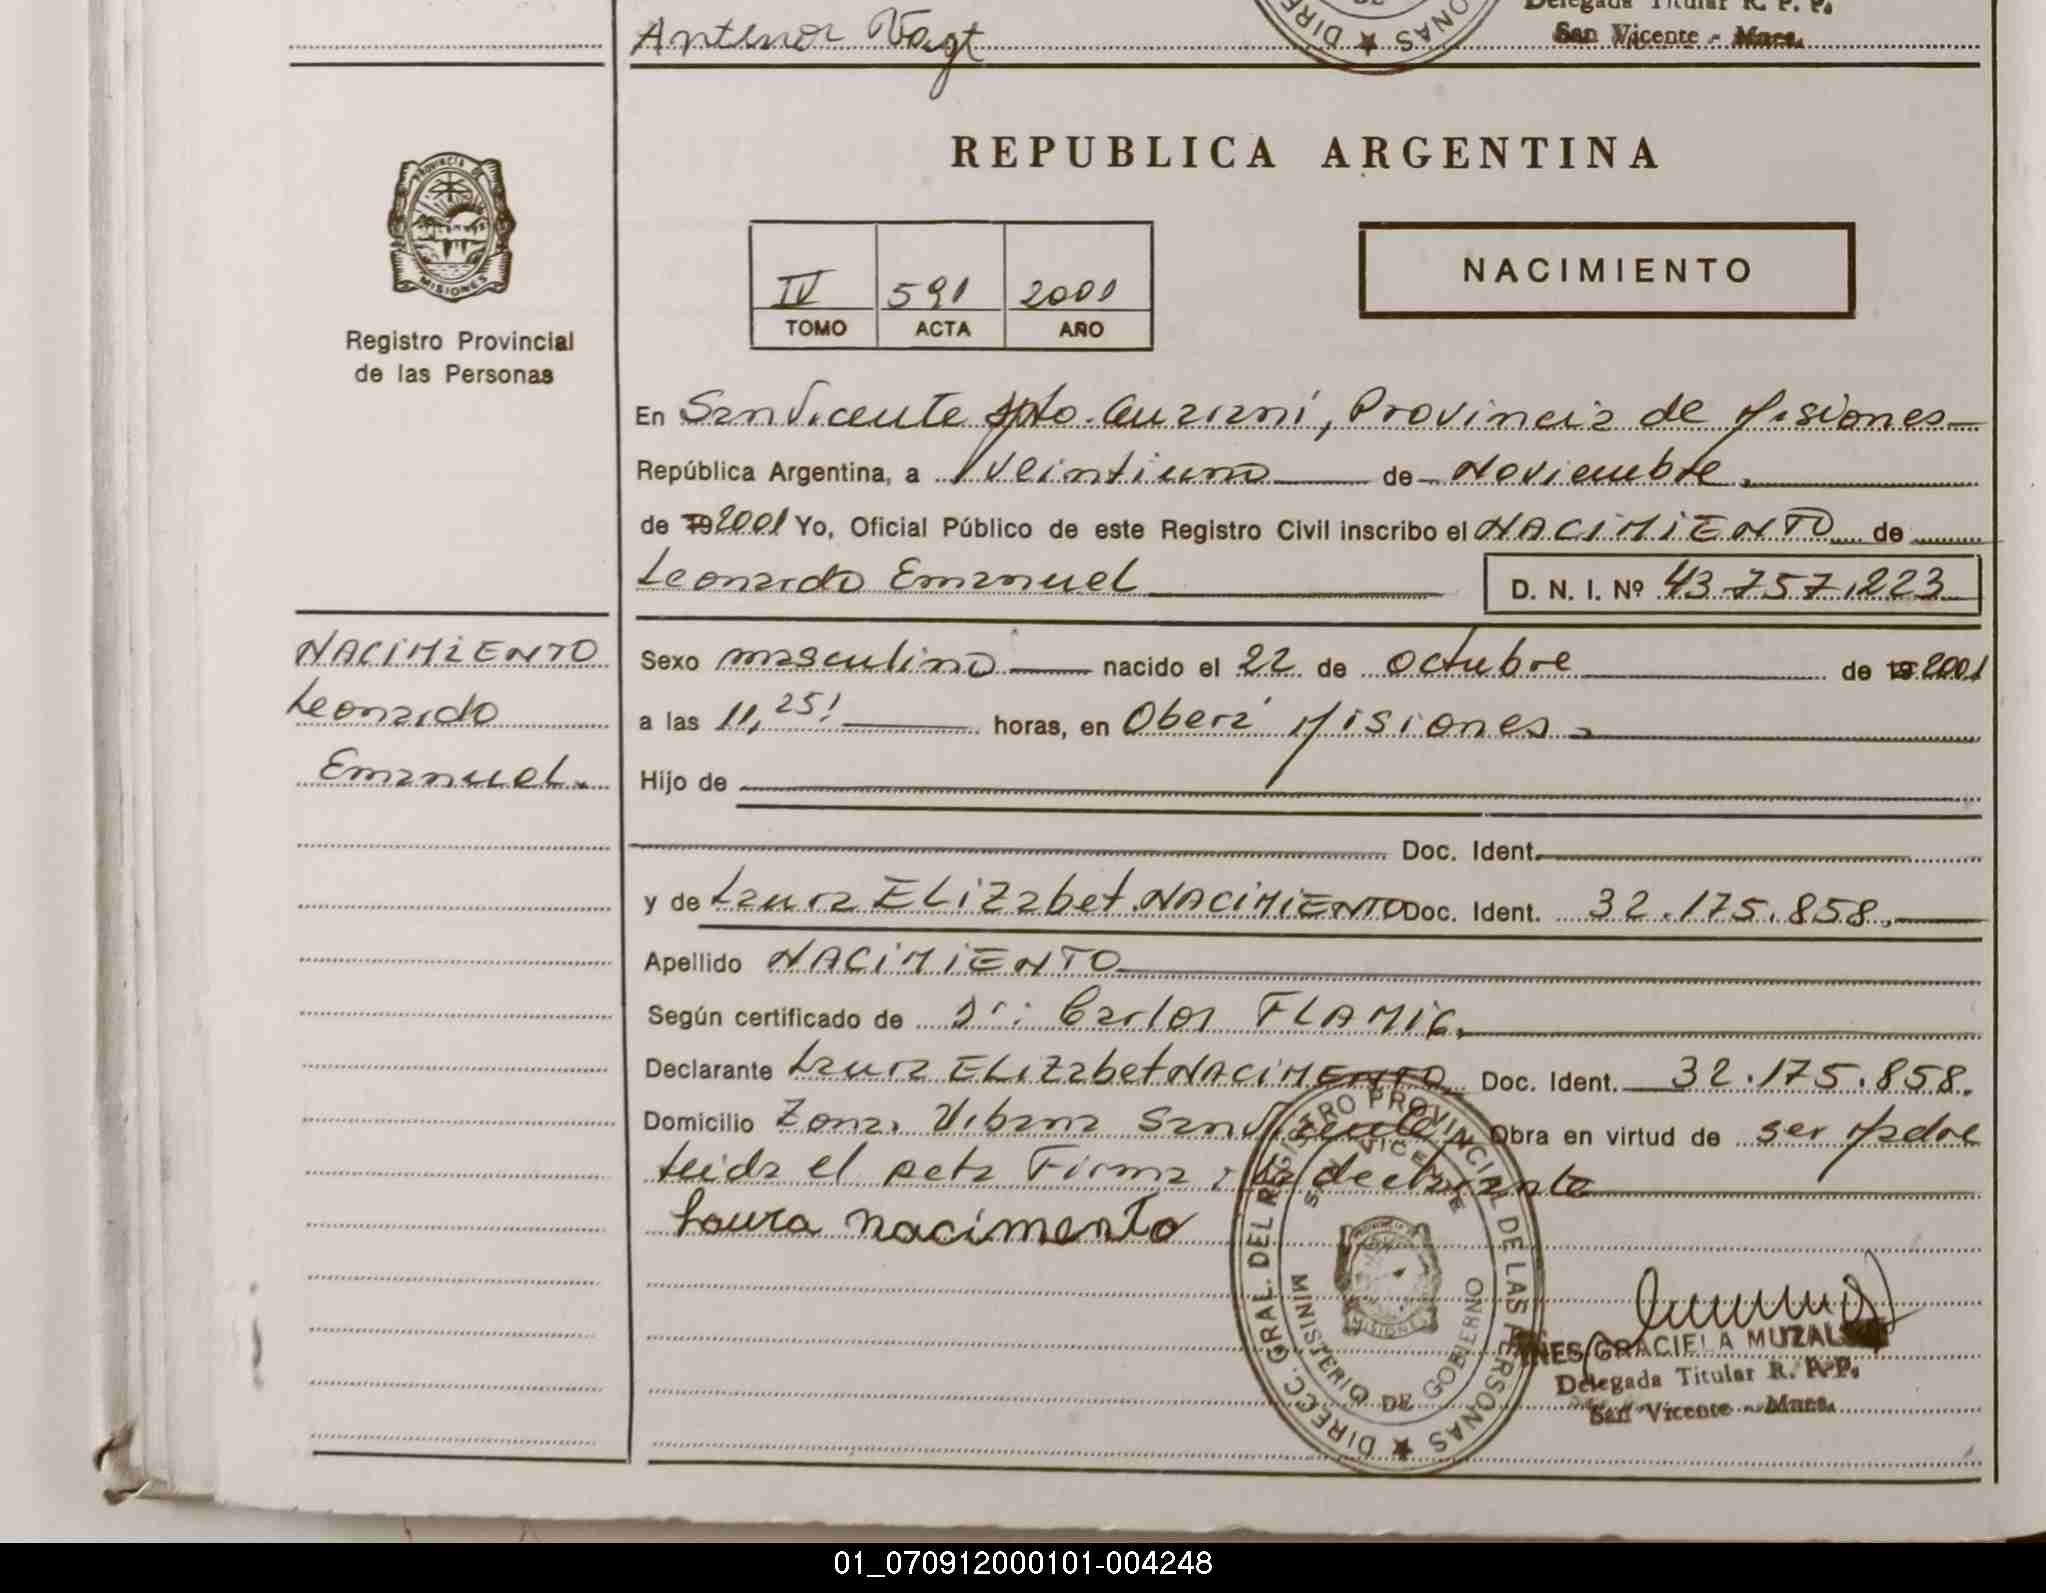 Antenor Vogt
Delegada Titular R. P. P.
San Vicente - Mnes.
REPUBLICA ARGENTINA
PROVINCIA DE
MISIONES
Registro Provincial
de las Personas
IV 591 2001
TOMO ACTA AÑO
NACIMIENTO
En San Vicente Dpto. Guaraní, Provincia de Misiones
República Argentina, a Veintiuno de Noviembre.
de 19 2001 Yo, Oficial Público de este Registro Civil inscribo el NACIMIENTO de
Leonardo Emanuel D. N. I. Nº 43.757.223
NACIMIENTO
Leonardo
Emanuel.
Sexo masculino nacido el 22 de octubre de 19 2001
a las 11,25! horas, en Oberá Misiones.
Hijo de
Doc. Ident.
y de Laura ELIZabet NACIMIENTO Doc. Ident. 32.175.858.
Apellido NACIMIENTO
Según certificado de Dr: Carlos
Declarante Laura ELIZabet NACIMIENTO Doc. Ident. 32.175.858.
Domicilio Zona Urbana San Vicente Obra en virtud de ser padre
leida el acta Firma: la declarante
Laura nacimento
DIRECC. GRAL. DEL REGISTRO PROVINCIAL DE LAS PERSONAS
SAN VICENTE
MINISTERIO DE GOBIERNO
MISIONES
INES GRACIELA
Delegada Titular R. P. P.
San Vicente - Mnes.
01_070912000101-004248